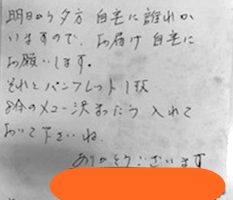 明日から夕方 自宅に誰れか
いますので、お届け自宅に
お願いします。
それとパンフレット1枚
8金のメニュー決まったら 入れて
おいて下さいね
ありがとうございます